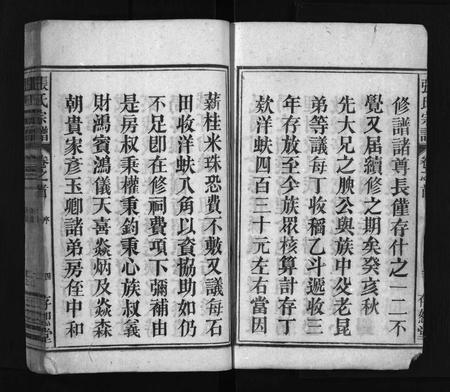 修譜諸尊長僅存什之一二不
覺又屆續修之期矣癸亥秋
先大兄之腴公與族中殳老昆
弟等議每丁收稻乙斗遞收三
年存放至今族眾核算計存丁
欵洋蚨四百三十元左右當因
薪桂米珠恐費不敷又議每石
田收洋蚨八角以資協助如仍
不足卽在修祠費項下彌補由
是房叔秉權秉鈞秉心族叔義
財鴻賓鴻儀天喜焱炳及焱森
朝貴家彥玉卿諸弟房侄中和
張氏宗譜 卷之首 序 四
張氏宗譜 卷之首